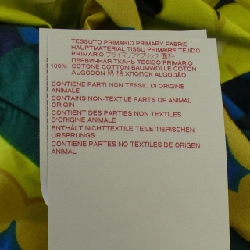 TESSUTO PRIMARIO PRIMARY FABRIC
HAUPTMATERIAL TISSU PRIMAIRE TEJIDO
PRIMARIO
TECIDO PRIMARIO
100% COTONE COTTON BAUMWOLLE COTON
ALGODON ХЛОПОК ALGODÃO
CONTIENE PARTI NON TESSILI DI ORIGINE
ANIMALE
CONTAINS NON-TEXTILE PARTS OF ANIMAL
ORIGIN
CONTIENT DES PARTIES NON TEXTILES
D'ORIGINE ANIMALE
ENTHÄLT NICHTTEXTILE TEILE TIERISCHEN
URSPRUNGS
CONTIENE PARTES NO TEXTILES DE ORIGEN
ANIMAL